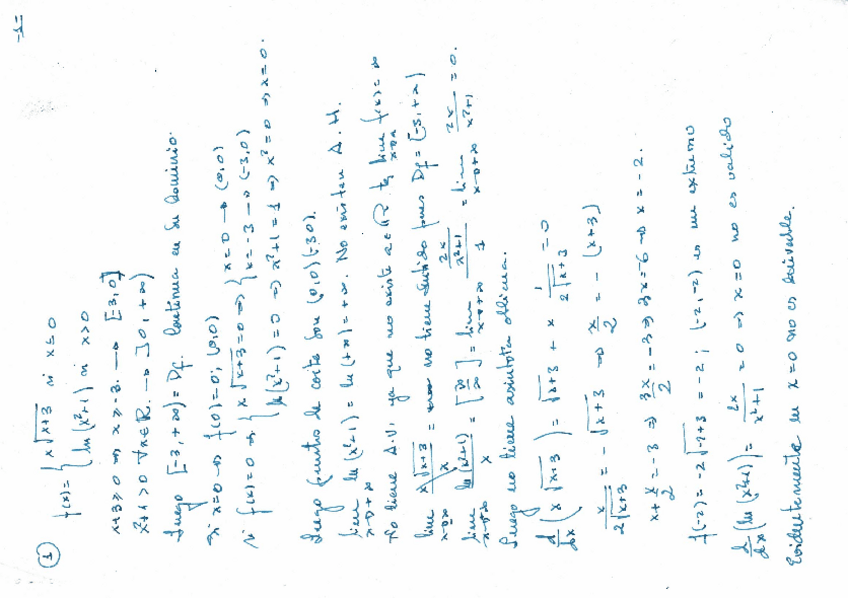 -1=
① f(x) = { x√(x+3) si x ≤ 0
ln(x²+1) si x > 0
x+3 ≥ 0 ⇒ x ≥ -3. → [-3, 0]
x²+1 > 0 ∀x∈ℝ. → ]0, +∞)
Luego [-3, +∞) = Df. Continua en su dominio.
Si x=0 ⇒ f(0)=0; (0,0)
Si f(x)=0 ⇒ { x√(x+3) = 0 ⇒ { x=0 → (0,0)
x=-3 → (-3,0)
ln(x²+1) = 0 ⇒ x²+1 = 1 ⇒ x² = 0 ⇒ x=0.
Luego puntos de corte son (0,0) (-3,0).
lim x→+∞ ln(x²+1) = ln(+∞) = +∞. No existen A.H.
No tiene A.V. ya que no existe a∈ℝ tq lim x→a f(x) = ∞
lim x→-∞ x√(x+3)/x = no tiene sentido pues Df = [-3, +∞)
lim x→+∞ ln(x²+1)/x = [∞/∞] = lim x→+∞ (2x/(x²+1))/1 = lim x→+∞ 2x/(x²+1) = 0.
Luego no tiene asíntota oblicua.
d/dx (x√(x+3)) = √(x+3) + x 1/(2√(x+3)) = 0
x/(2√(x+3)) = -√(x+3) ⇒ x/2 = -(x+3)
x + x/2 = -3 ⇒ 3x/2 = -3 ⇒ 3x = -6 ⇒ x = -2.
f(-2) = -2√(-2+3) = -2; (-2,-2) es un extremo
d/dx (ln(x²+1)) = 2x/(x²+1) = 0 ⇒ x=0 no es valido
Evidentemente en x=0 no es derivable.